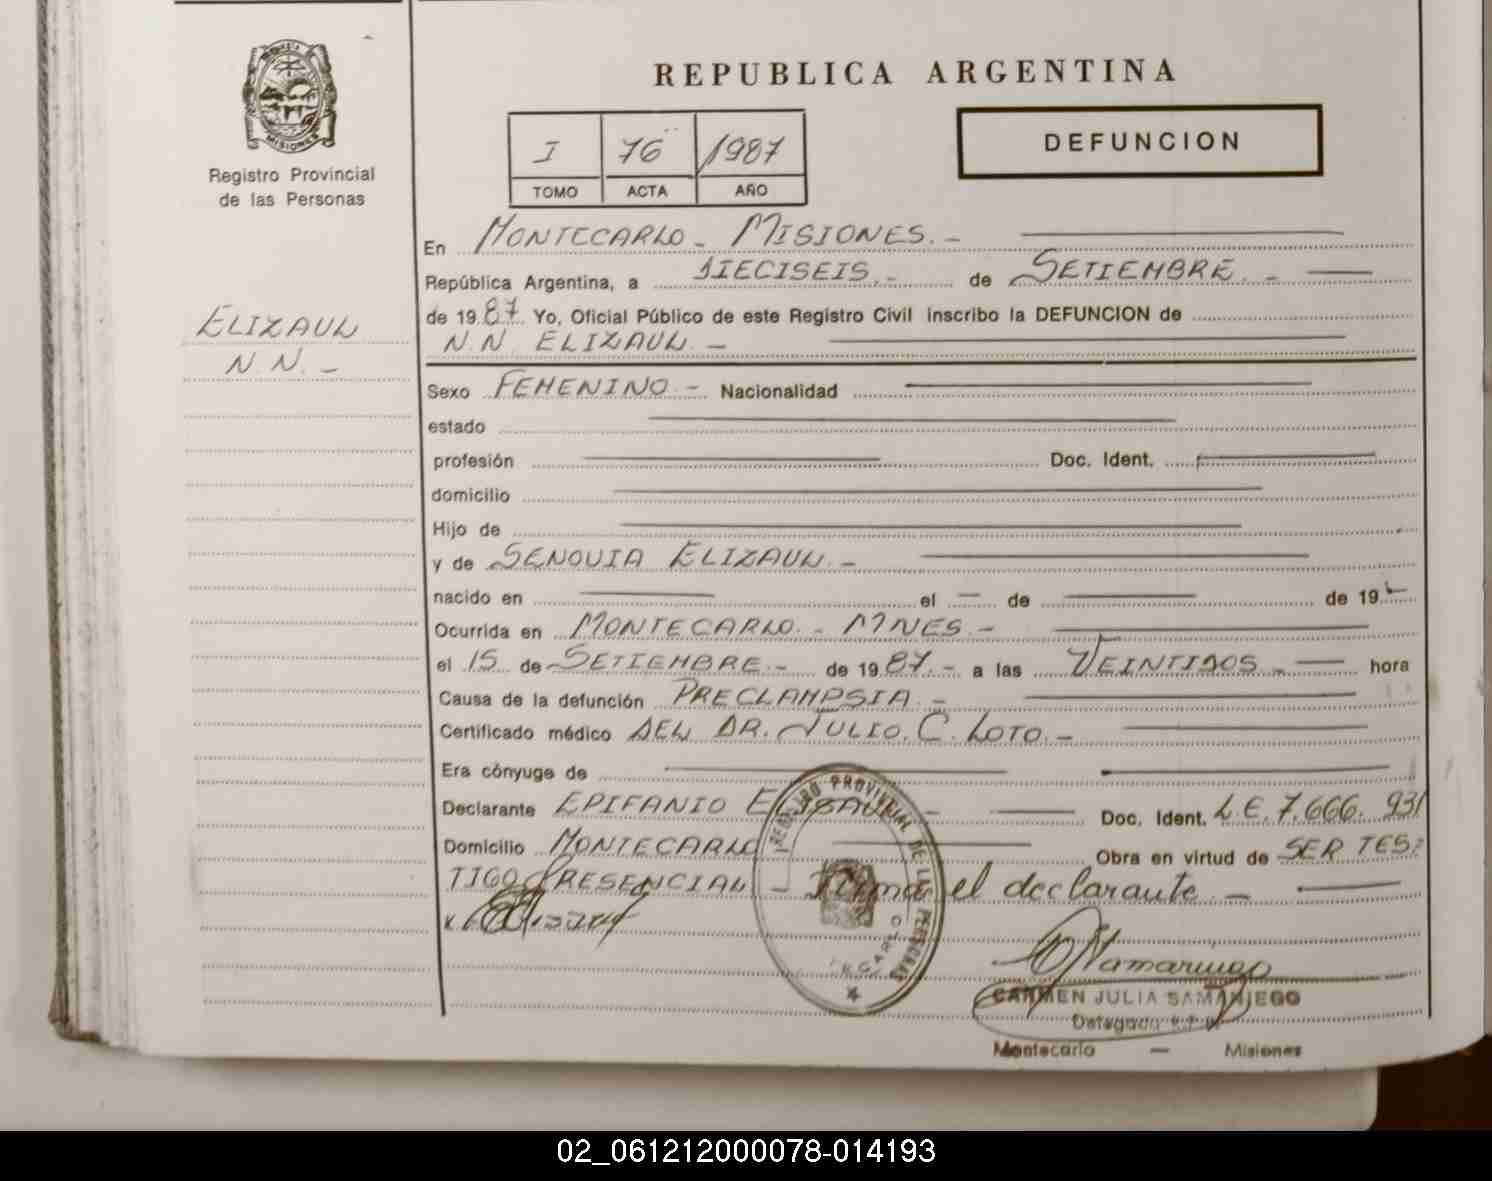 REPUBLICA ARGENTINA
MISIONES
Registro Provincial
de las Personas
I 76 1987
TOMO ACTA AÑO
DEFUNCION
ELIZAUL
N.N.-
En MONTECARLO - MISIONES.-
República Argentina, a DIECISEIS.- de SETIEMBRE.-
de 1987. Yo, Oficial Público de este Registro Civil inscribo la DEFUNCION de
N.N ELIZAUL.-
Sexo FEMENINO - Nacionalidad
estado
profesión Doc. Ident.
domicilio
Hijo de
y de SENOUIA ELIZAUL.-
nacido en el de de 19
Ocurrida en MONTECARLO - MNES.-
el 15 de SETIEMBRE.- de 1987.- a las VEINTIDOS.- hora
Causa de la defunción PRECLAMPSIA.-
Certificado médico DEL DR. JULIO. C. LOTO.-
Era cónyuge de
Declarante EPIFANIO ELIZAUL - Doc. Ident. L.E. 7.666.931
Domicilio MONTECARLO Obra en virtud de SER TES:
TIGO PRESENCIAL - Firma el declarante.-
REGISTRO PROVINCIAL DE LAS PERSONAS
CARMEN JULIA SAMANIEGO
Delegada
Montecarlo - Misiones
02_061212000078-014193